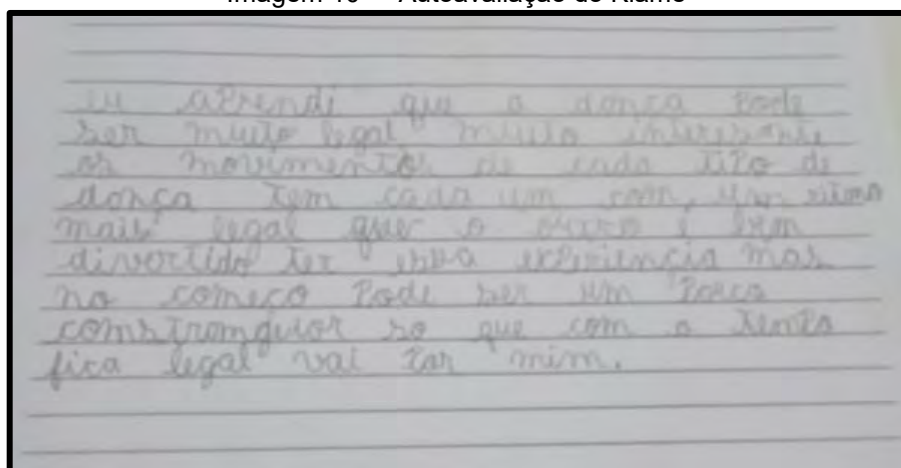 eu aprendi que a dança pode
ser muito legal muito interesante
os movimentos de cada tipo de
dança tem cada um com um ritmo
mais legal que o outro é bem
divertido ter essa experiencia mas
no começo pode ser um poco
comstromgedor so que com o tempo
fica legal vai por mim.